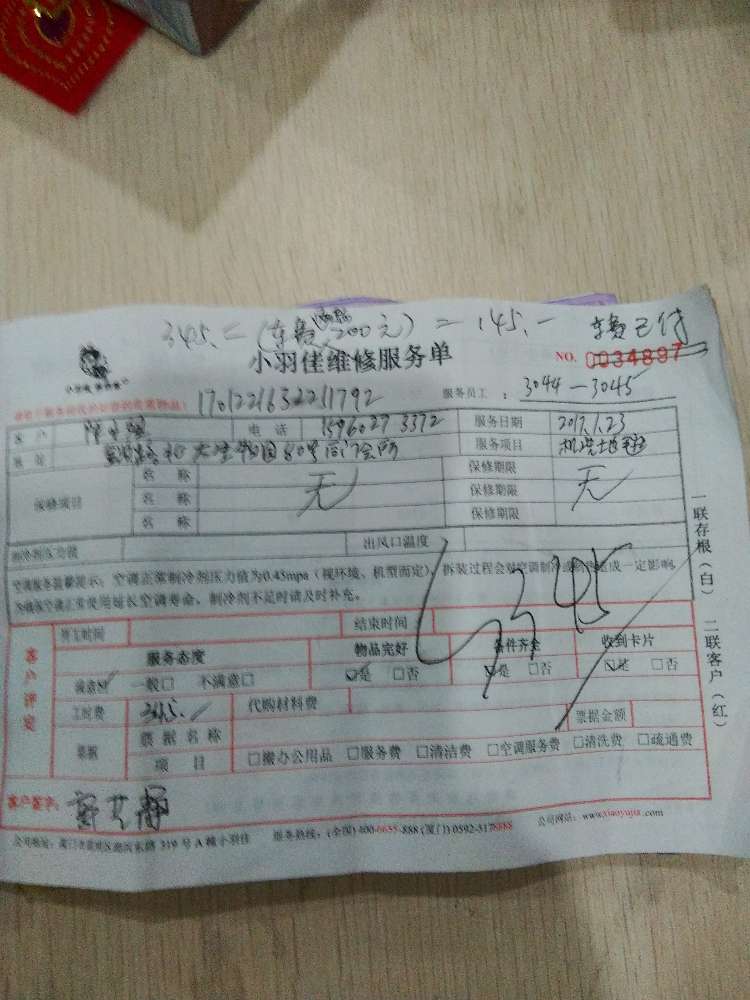 345.- (车费 200元) = 145.- 车费已付
小羽佳维修服务单
NO. 0034897
服务员工：3044-3045
客户 电话 服务日期 2017.1.23
80号 会所 服务项目
保修项目 名称 无 保修期限 无
名称 保修期限
名称 保修期限
制冷剂压力值 出风口温度
空调服务温馨提示：空调正常制冷剂压力值为0.45mpa（视环境、机型而定），拆装过程会对空调制冷或制热造成一定影响
为确保空调正常使用延长空调寿命，制冷剂不足时请及时补充。
345
客户评定
开始时间 结束时间
服务态度 物品完好 备件齐全 收到卡片
满意☑ 一般□ 不满意□ ☑是 □否 ☑是 □否 ☑是 □否
工时费 345.- 代购材料费
票据 票据名称 票据金额
项目 □搬办公用品 □服务费 □清洁费 □空调服务费 □清洗费 □疏通费
客户签字：
服务热线：(全国)400-6655-888 (厦门)0592-5178888 公司网站：www.xiaoyujia.com
一联存根（白） 二联客户（红）